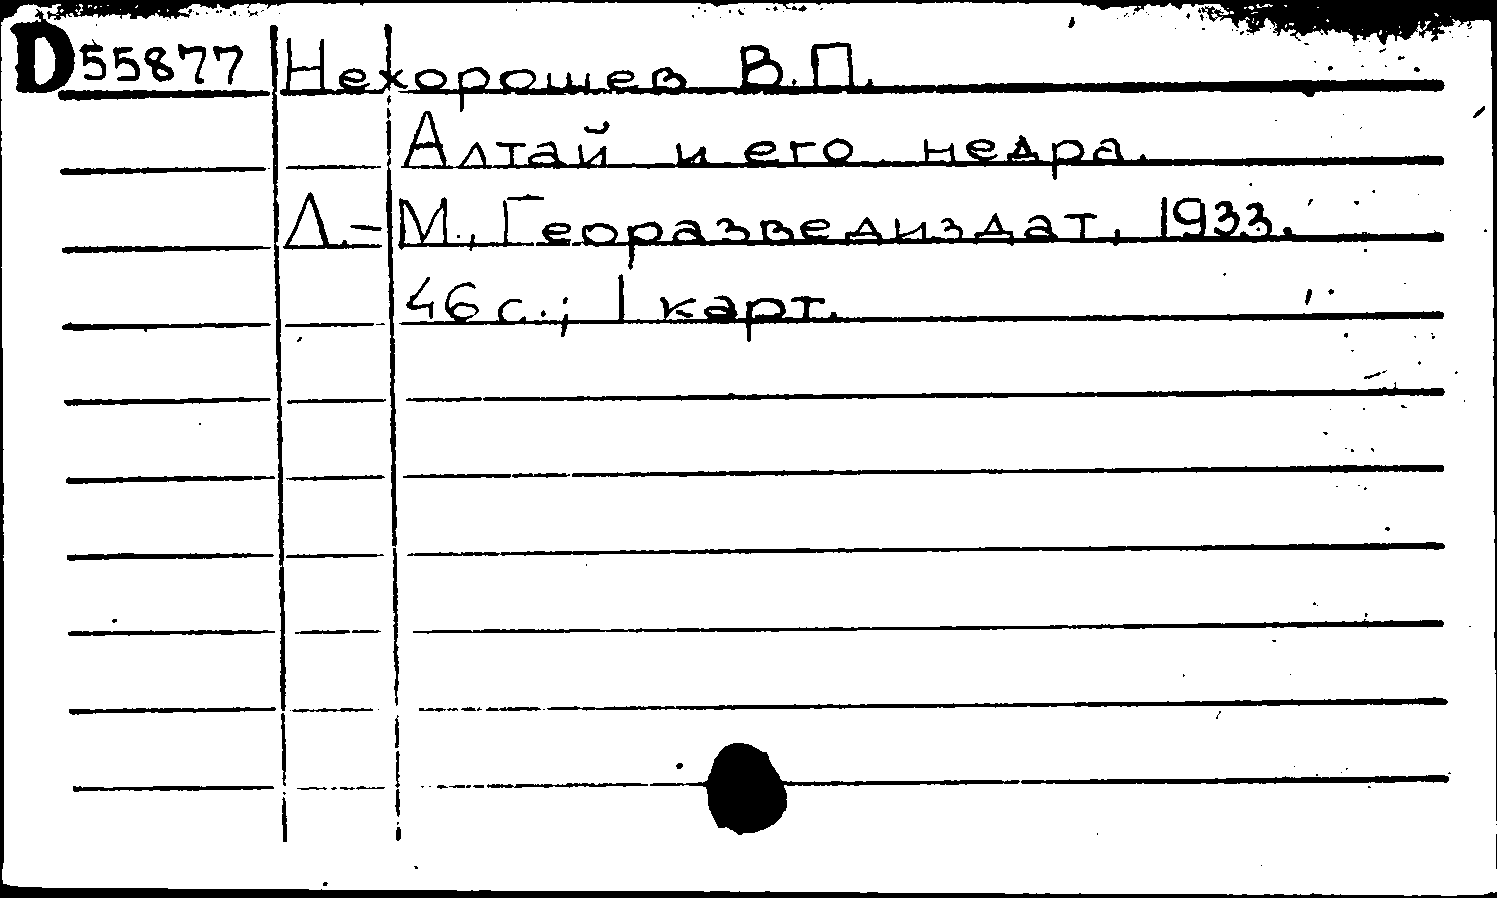 D55877 Нехорошев В.П.
Алтай и его недра.
Л.-М., Георазведиздат, 1933.
46 с.; 1 карт.